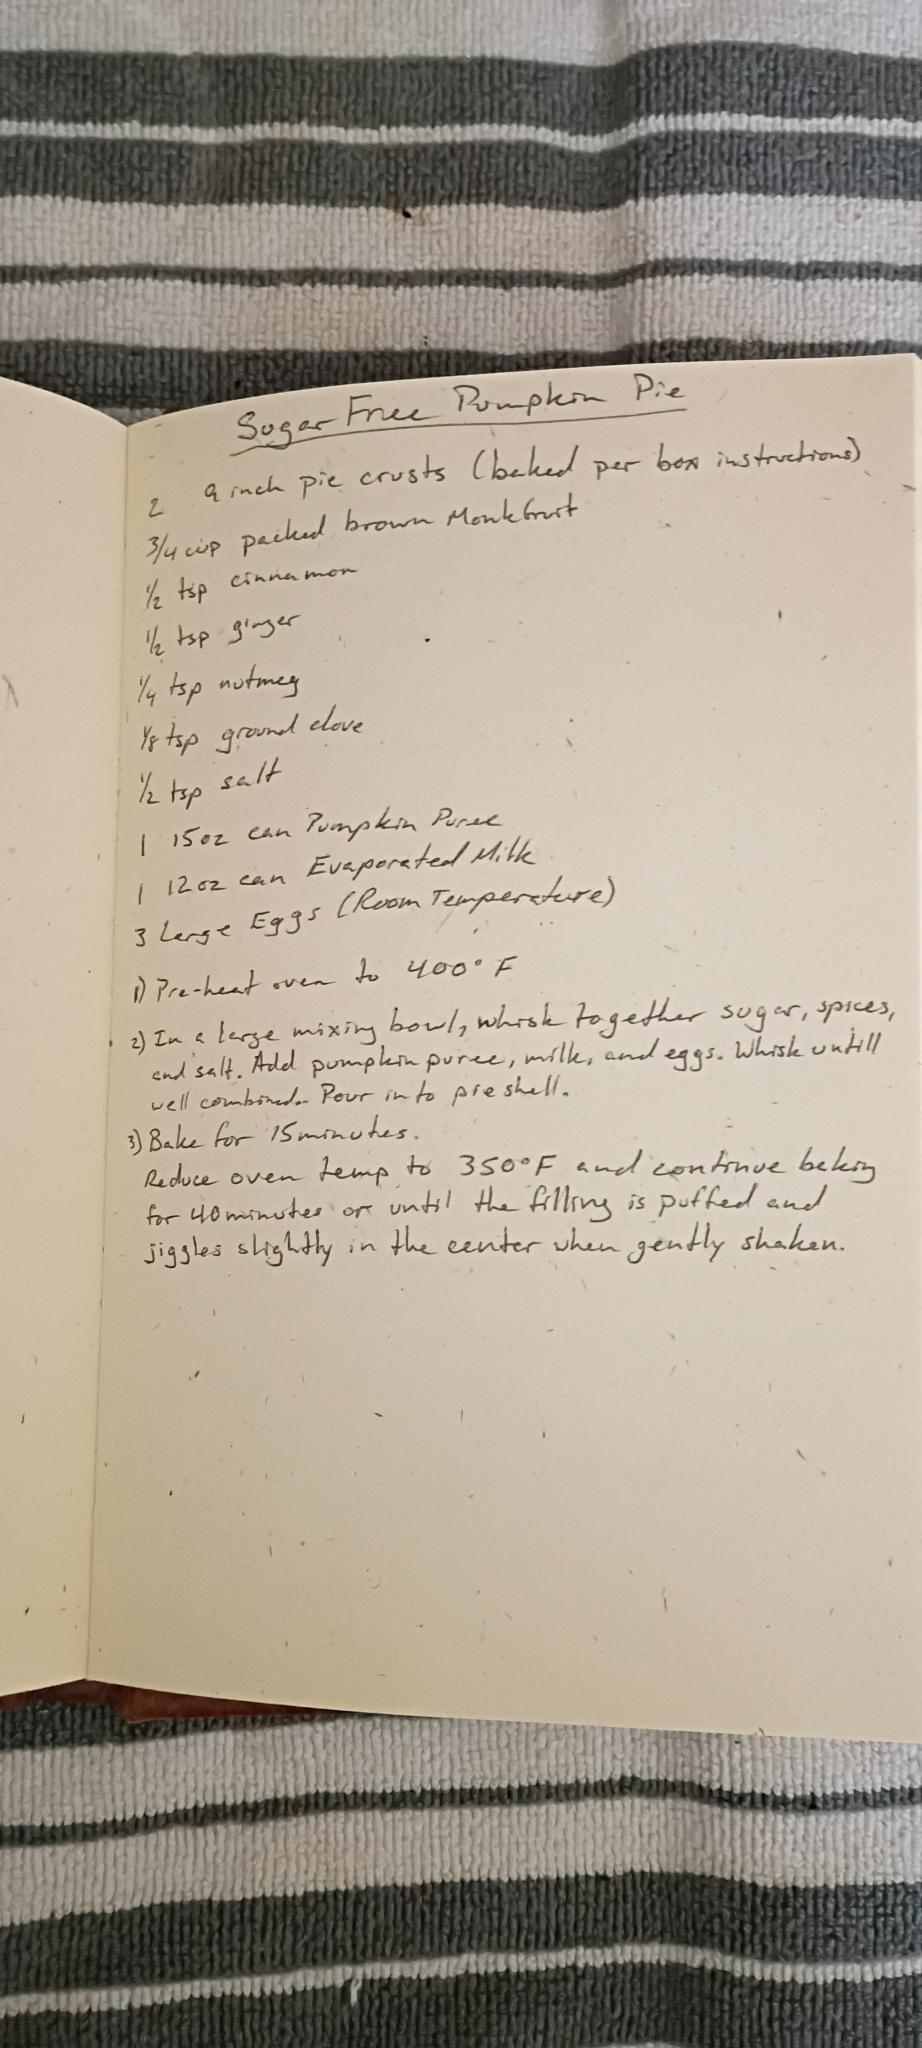 Sugar Free Pumpkin Pie
2 9 inch pie crusts (baked per box instructions)
3/4 cup packed brown Monkfruit
1/2 tsp cinnamon
1/2 tsp ginger
1/4 tsp nutmeg
1/8 tsp ground clove
1/2 tsp salt
1 15oz can Pumpkin Puree
1 12oz can Evaporated Milk
3 Large Eggs (Room Temperature)
1) Pre-heat oven to 400° F
2) In a large mixing bowl, whisk together sugar, spices,
and salt. Add pumpkin puree, milk, and eggs. Whisk untill
well combined. Pour into pie shell.
3) Bake for 15 minutes.
Reduce oven temp to 350°F and continue baking
for 40 minutes or until the filling is puffed and
jiggles slightly in the center when gently shaken.